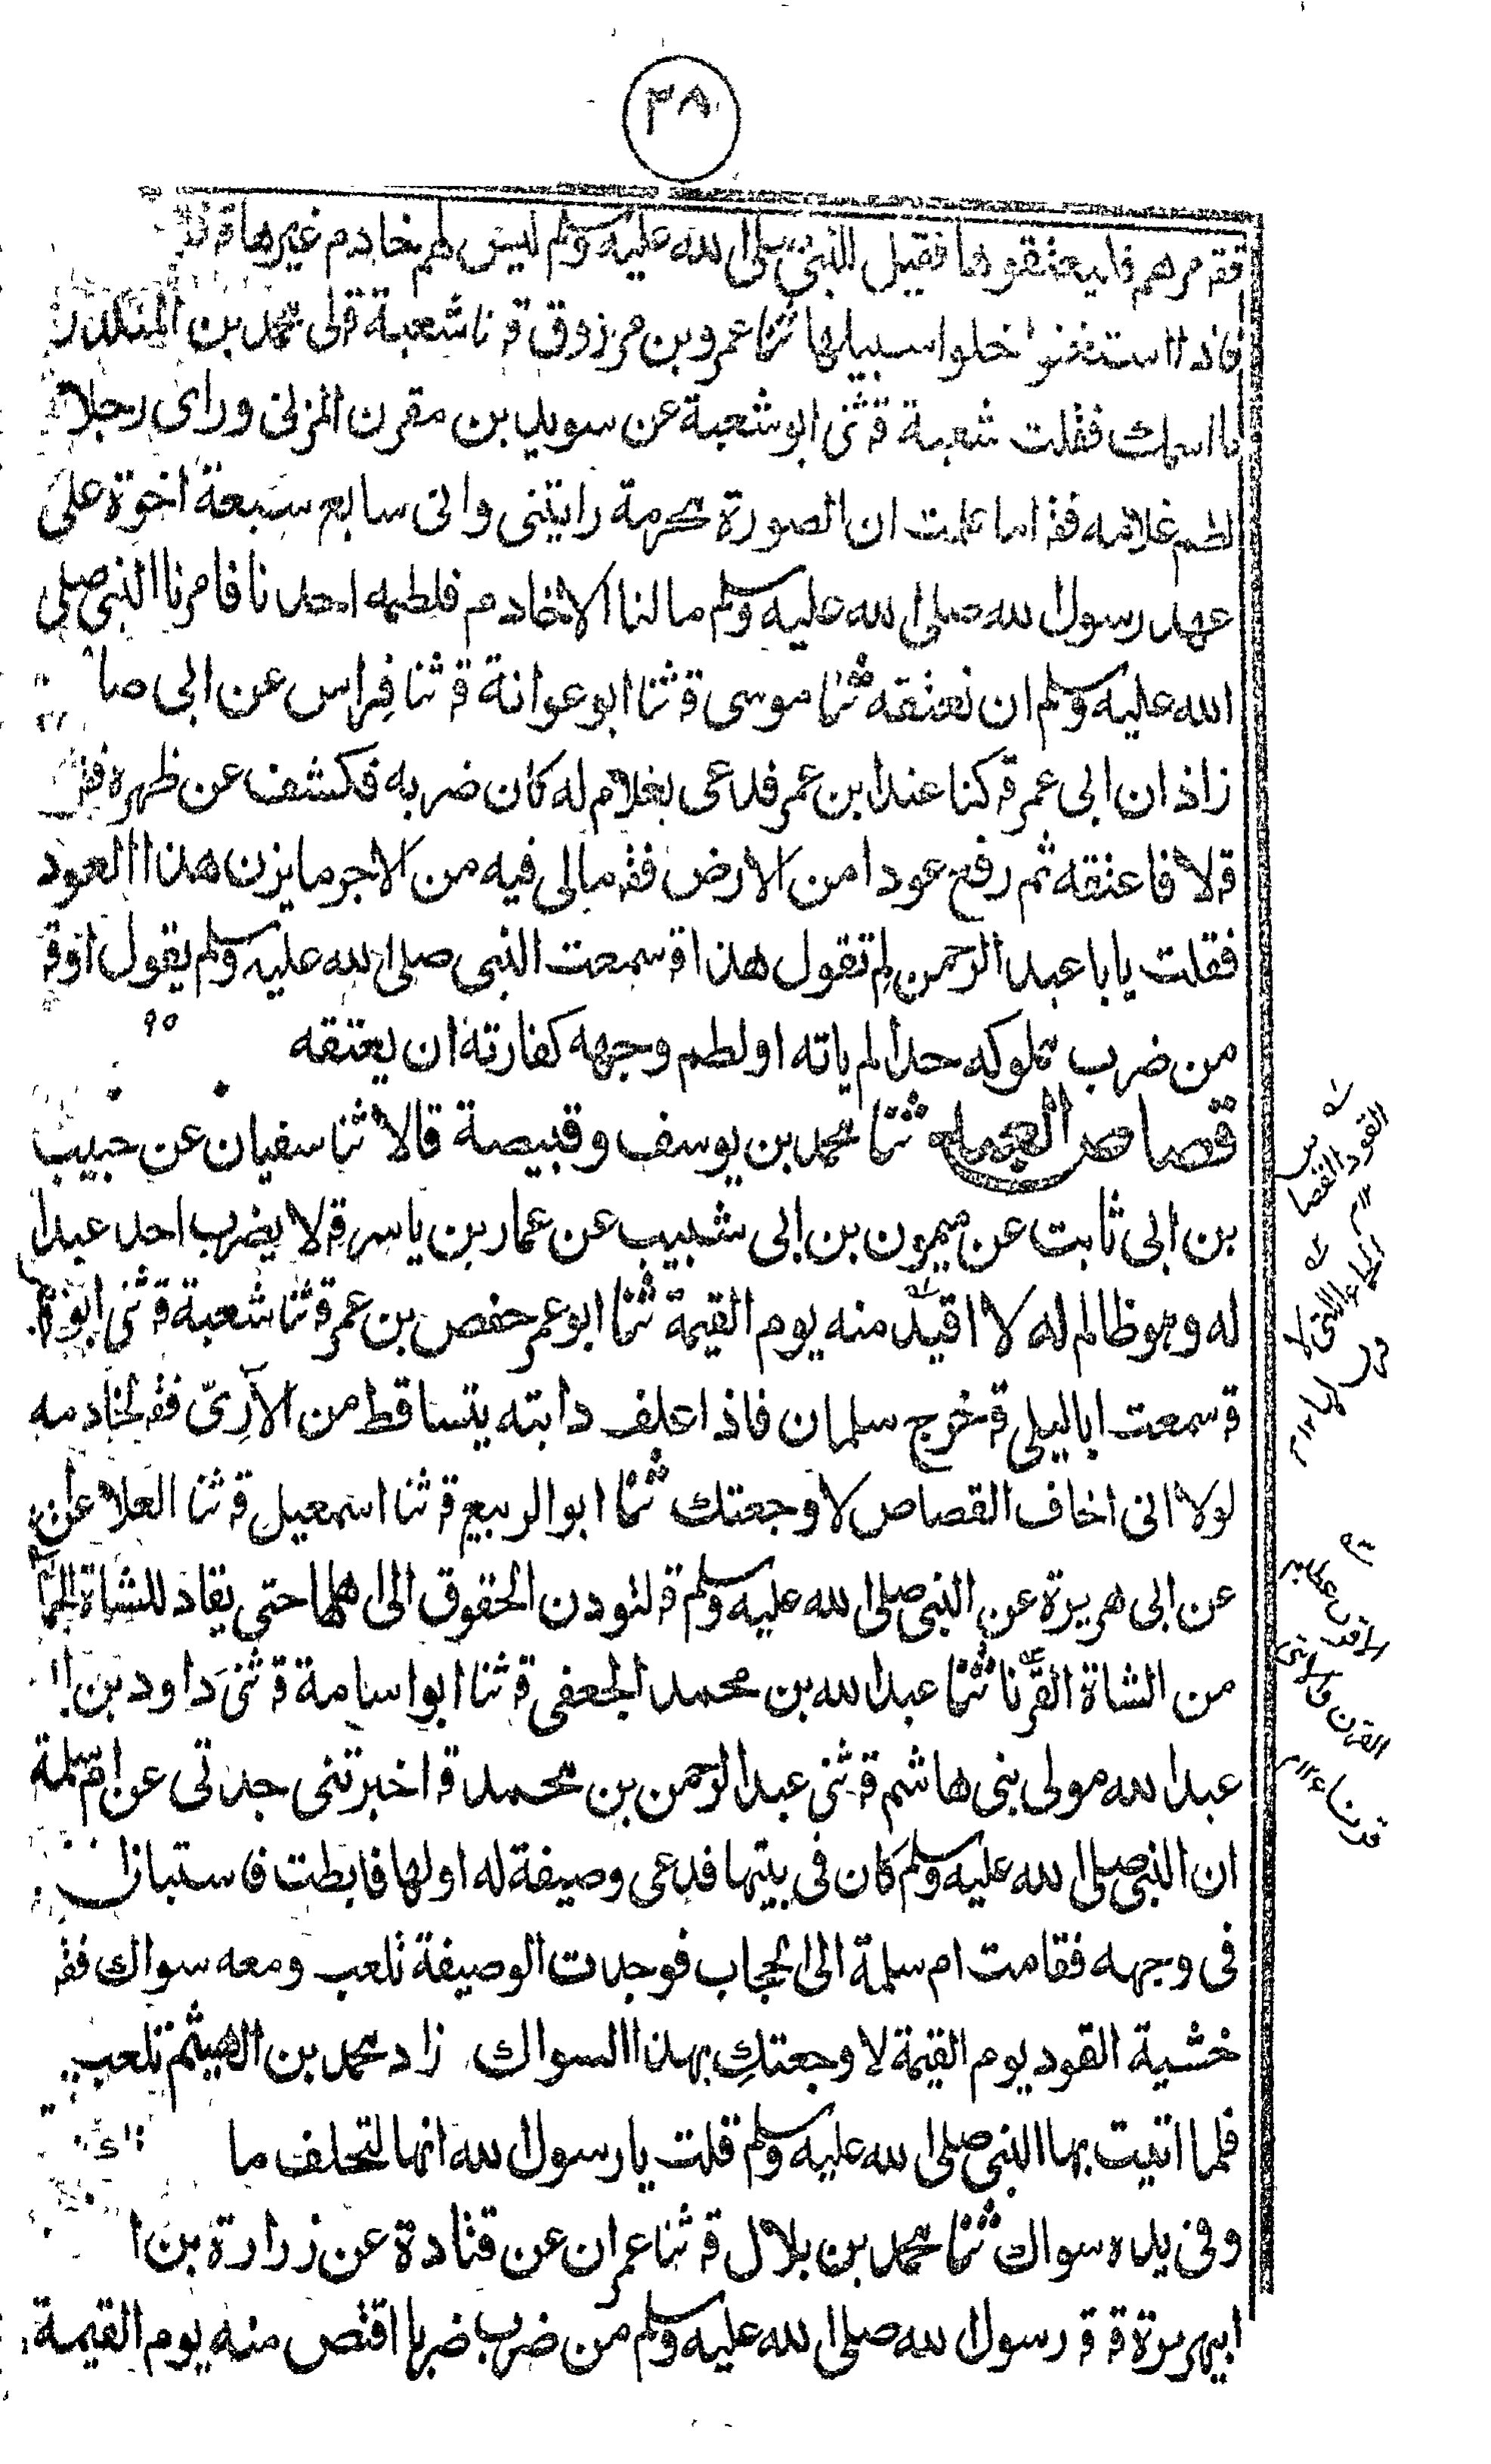 ٣٨
فقـ مرهم فليعتقوها فقيل للنبى صلى الله عليه وسلم ليس لهم خادم غيرها قـ
فاذا استغنوا خلوا سبيلها ثنا عمرو بن مرزوق قـ نا شعبة قـ لى محمد بن المنكدر
ما اسمك فقلت شعبة قـ ثنى ابو شعبة عن سويد بن مقرن المزنى وراى رجلا
لطم غلامه فقـ اما علمت ان الصورة محرمة رايتنى وانى سابع سبعة اخوة على
عهد رسول الله صلى الله عليه وسلم ما لنا الا خادم فلطمه احدنا فامرنا النبى صلى
الله عليه وسلم ان نعتقه ثنا موسى قـ ثنا ابو عوانة قـ ثنا فِراس عن ابى صا
زاذان ابى عمر قـ كنا عند ابن عمر فدعى بغلام له كان ضربه فكشف عن ظهره فقـ
قـ لا فاعتقه ثم رفع عودا من الارض فقـ مالى فيه من الاجر ما يزن هذا العود
فقلت يابا عبد الرحمن لِم تقول هذا قـ سمعت النبى صلى الله عليه وسلم يقول اوقـ
من ضرب مملوكه حدا لم ياته او لطم وجهه كفارته ان يعتقه
٩٥
قصاص العبد ثنا محمد بن يوسف وقبيصة قالا ثنا سفيان عن حبيب
بن ابى ثابت عن ميمون بن ابى شبيب عن عمار بن ياسر قـ لا يضرب احد عبدا
له وهو ظالم له لا اقيد منه يوم القيمة ثنا ابو عمر حفص بن عمر قـ ثنا شعبة قـ ثنى ابو
قـ سمعت ابا ليلى قـ خرج سلمان فاذا علف دابته يتساقط من الآرىّ فقـ لخادمه
لولا انى اخاف القصاص لاوجعتك ثنا ابو الربيع قـ ثنا اسمعيل قـ ثنا العلا عن
عن ابى هريرة عن النبى صلى الله عليه وسلم قـ لتودن الحقوق الى اهلها حتى يقاد للشاة الجمآ
من الشاة القرنا ثنا عبد الله بن محمد الجعفى قـ ثنا ابو اسامة قـ ثنى داود بن ا
عبد الله مولى بنى هاشم قـ ثنى عبد الرحمن بن محمد قـ اخبرتنى جدتى عن ام سلمة
ان النبى صلى الله عليه وسلم كان فى بيتها فدعى وصيفة له او لها فابطت فاستبان
فى وجهه فقامت ام سلمة الى الحجاب فوجدت الوصيفة تلعب ومعه سواك فقـ
خشية القود يوم القيمة لاوجعتكِ بهذا السواك زاد محمد بن الهيثم تلعب
فلما اتيت بها النبى صلى الله عليه وسلم قلت يا رسول الله انها لتحلف ما
وفى يده سواك ثنا محمد بن بلال قـ ثنا عمران عن قتادة عن زرارة بن ا
ابيهريرة قـ قـ رسول الله صلى الله عليه وسلم من ضرب ضربا اقتص منه يوم القيمة
القود القصاص